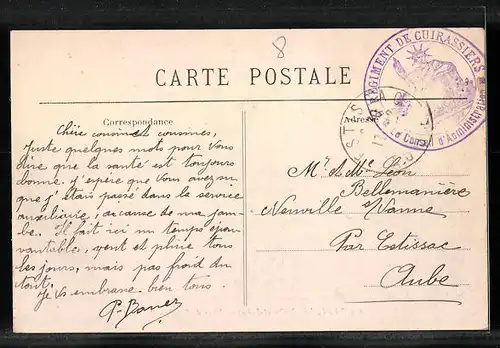 8
CARTE POSTALE
Correspondance
Adresse
RÉGIMENT DE CUIRASSIERS
Le Conseil d'Administration
Chère cousine et cousines,
Juste quelques mots pour vous
dire que la santé est toujours
bonne. J'espère que vous avez su
que j'étais passé dans le service
auxiliaire, à cause de ma jam-
be. Il fait ici un temps épou
vantable, vent et pluie tous
les jours, mais pas froid du
tout.
Je vs embrasse bien tous.
Mr et Me Léon
Bellemanière
Neuville s/Vanne
Par Estissac
Aube